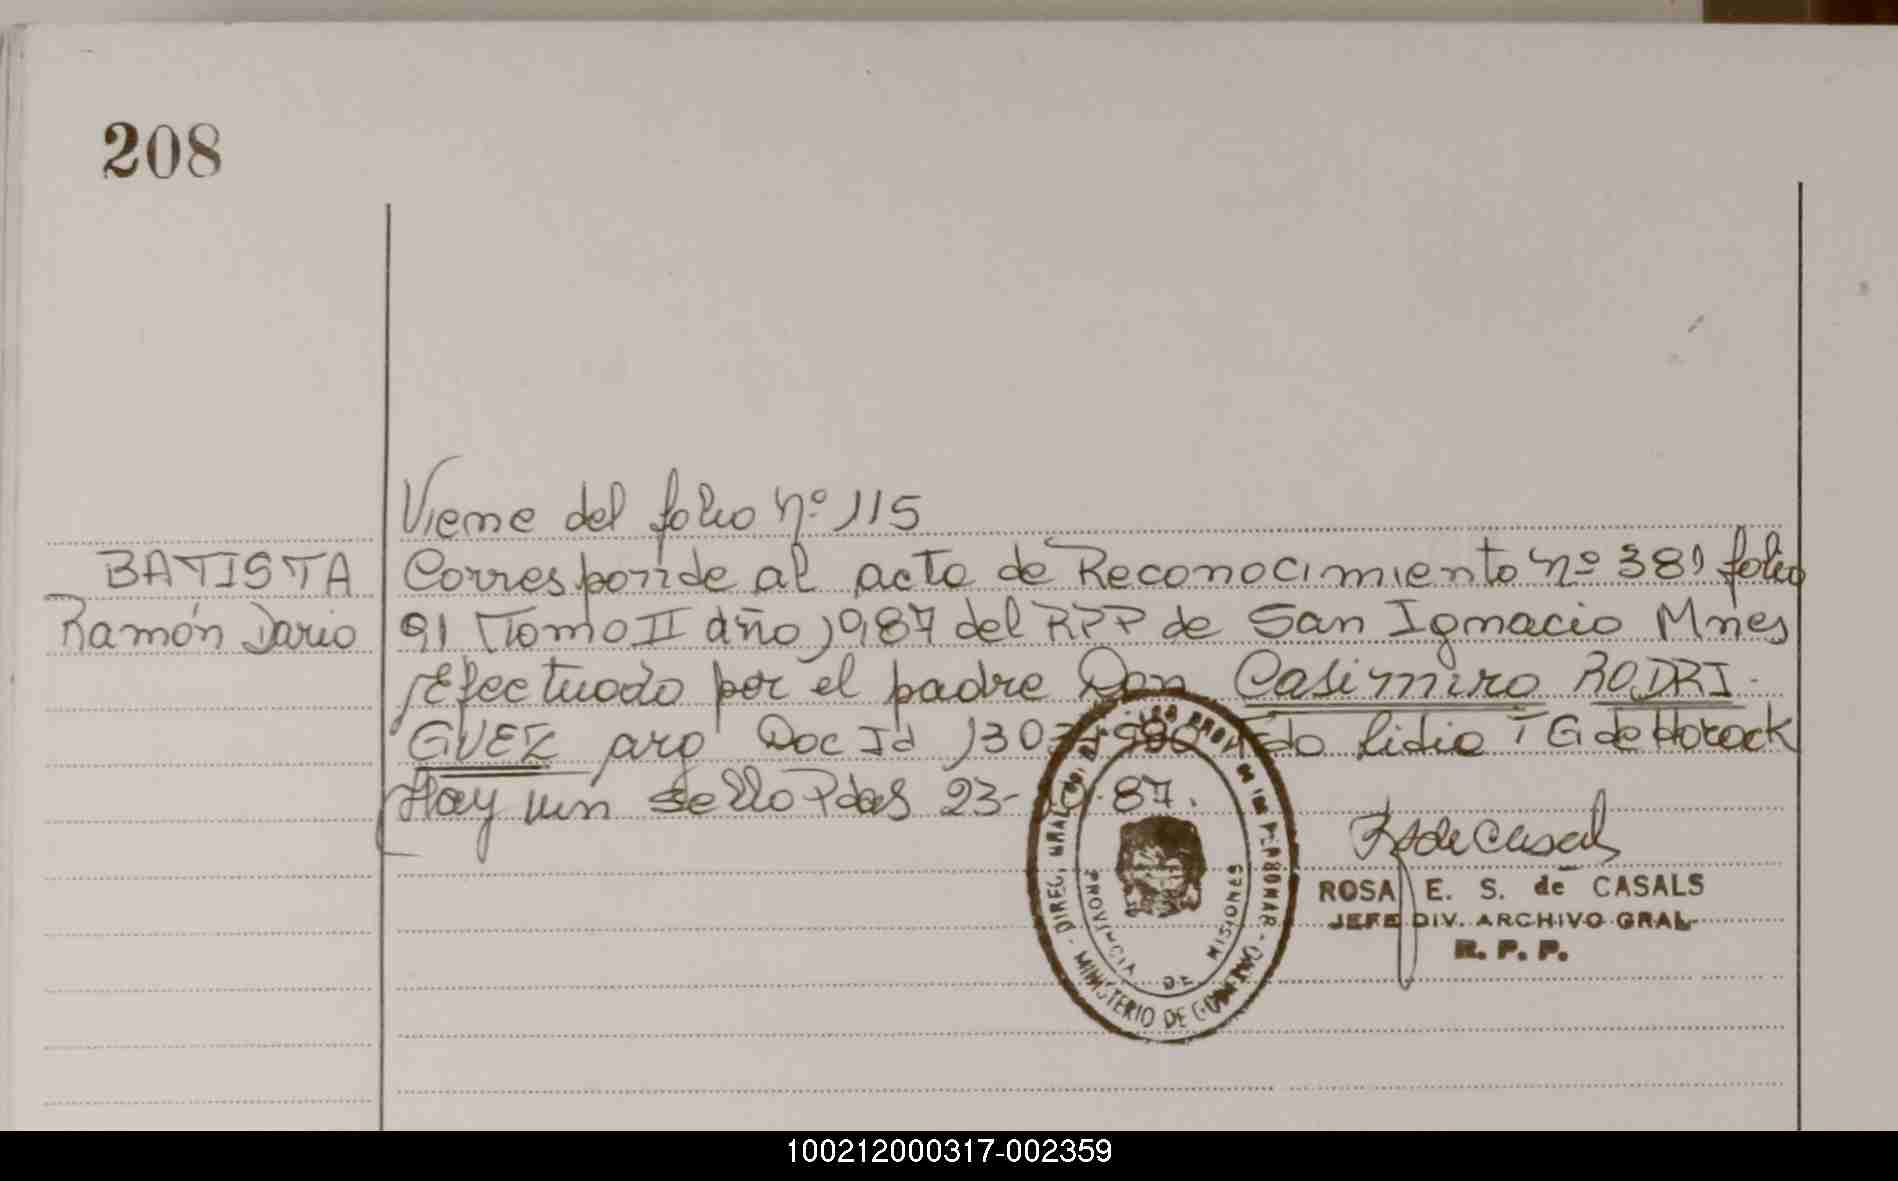 208
Viene del folio nº 115
BATISTA
Ramón Dario
Corresponde al acta de Reconocimiento nº 381 folio
91 Tomo II año 1987 del RPP de San Ignacio Mnes
Efectuado por el padre Don Casimiro RODRI-
GUEZ arg Doc Id Fdo Lidia T G de Horock
Hay un sello Pdas 23-10-87.
ROSA E. S. de CASALS
JEFE DIV. ARCHIVO GRAL
R. P. P.
DIREC. GRAL. PERSONAS - MINISTERIO DE GOBIERNO -
PROVINCIA DE MISIONES
100212000317-002359